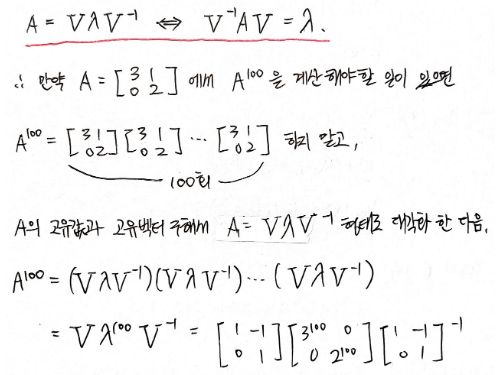 A = VλV⁻¹ ⇔ V⁻¹AV = λ.
∴ 만약 A = [3 1; 0 2] 에서 A¹⁰⁰ 을 계산해야할 일이 있으면
A¹⁰⁰ = [3 1; 0 2][3 1; 0 2] ⋯ [3 1; 0 2] 하지 말고,
100회
A의 고유값과 고유벡터 구해서 A = VλV⁻¹ 형태로 대각화 한 다음,
A¹⁰⁰ = (VλV⁻¹)(VλV⁻¹)⋯(VλV⁻¹)
= Vλ¹⁰⁰V⁻¹ = [1 -1; 0 1][3¹⁰⁰ 0; 0 2¹⁰⁰][1 -1; 0 1]⁻¹